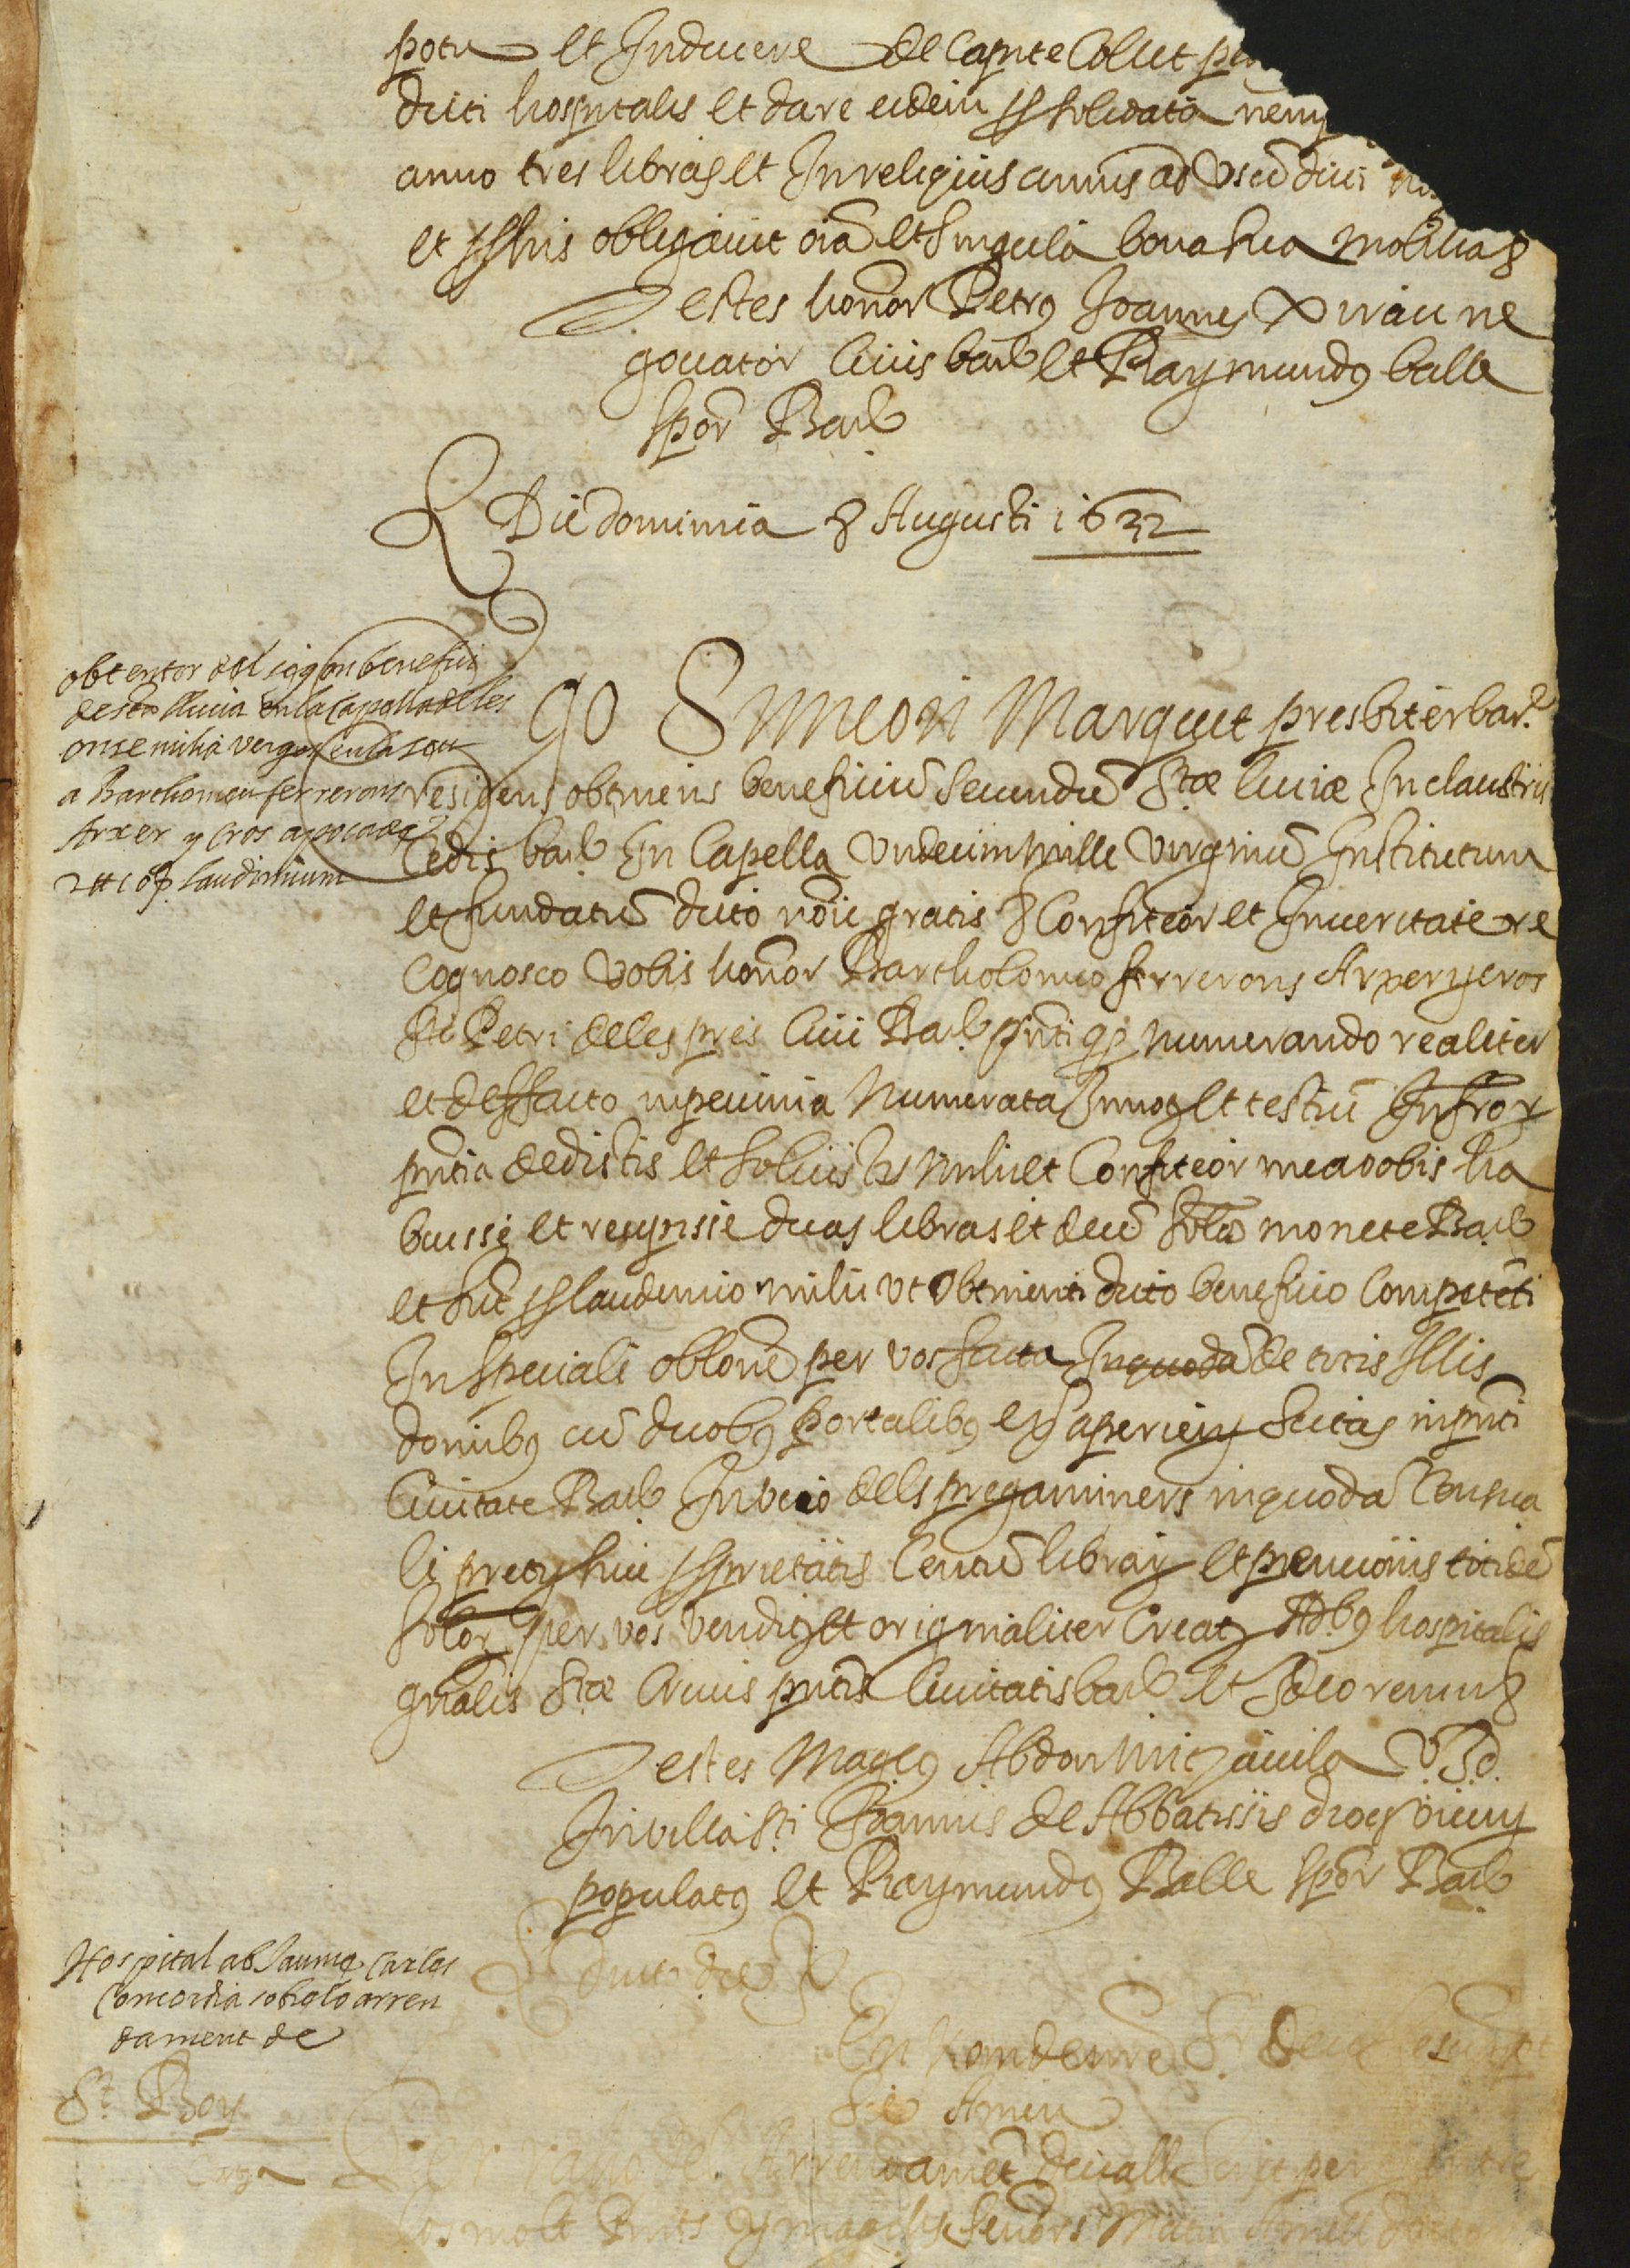 potu et Inducere de Capite Collet
dicti hospitalis et dare eidem p solidata
anno tres libras et In reliquis annis ad usu dicti
et p his obligavit oia et singula bona sua mobilia &
Testes honor Petrus Joannes Xirau ne
gociator Civis barñ et Raymundus balle
scptor Barñ
Die dominica 8 Augusti 1632
obtentor del segon benefici
de sta llucia en la capella de les
onse milia verges en la seu
a Barthomeu ferrerons
arxer y cros apoca de
2 ₶ 10 ß laudimium
Ego Simeon Marquet presbiter bar.
residens obtinens beneficiu secundu Stæ Luciæ In claustris
Sedis barñ In Capella Undecim mille Virginu Institutum
et fundatu dicto noie gratis & Confiteor et In veritate re
Cognosco Vobis honor Bartholomeo ferrerons Arxer y cros
de Petri de les pres Civi Barñ pnti qp numerando realiter
et de facto in pecunia Numerata et testiu Infror
pntia dedistis et solvistis Mihi et Confiteor me a vobis ha
buisse et recepisse duas libras et dece solidos monete Barñ
et sut p laudimio mihi ut obtinenti dicto beneficio Competeti
In speciali oblone per vos facta In quoda de totis Illis
domibus cu duobus portalibus ex aperien Scitas in pnti
Civitate Barñ In vico dels pregaminers in quoda Censua
li precy sive pprietatis Centu librar et pencionis totide
solor per vos vendit et originaliter Creat Adbus hospitalis
gnalis Stæ Crucis pntis Civitatis barñ et Ideo renun &
Testes Magcus Abdon Mir avila U.J.d.
In villa Sti Joannis de Abbatissis diocs vicen
populatus et Raymundus Balle scptor Barñ
Hospital ab Jaume Carles
Concordia sobre lo arren
dament de
St. Boy
Dicto die &
En Nom de nre Sr. Deu
sie Amen
Per raho del Arrendamet devall scrit per y entre
los molt Rnts y magchs Senors